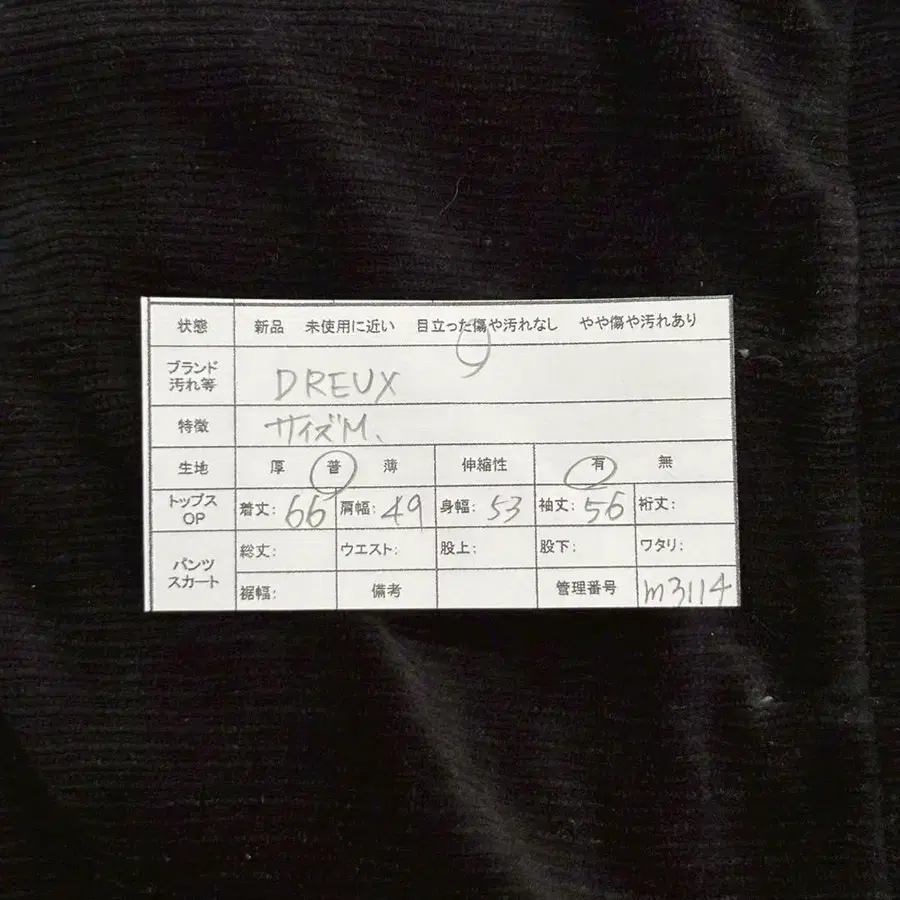 状態 新品 未使用に近い 目立った傷や汚れなし やや傷や汚れあり
ブランド
汚れ等 DREUX
特徴 サイズM、
生地 厚 普 薄 伸縮性 有 無
トップス
OP 着丈:66 肩幅:49 身幅:53 袖丈:56 裄丈:
パンツ
スカート 総丈: ウエスト: 股上: 股下: ワタリ:
裾幅: 備考 管理番号 m3114